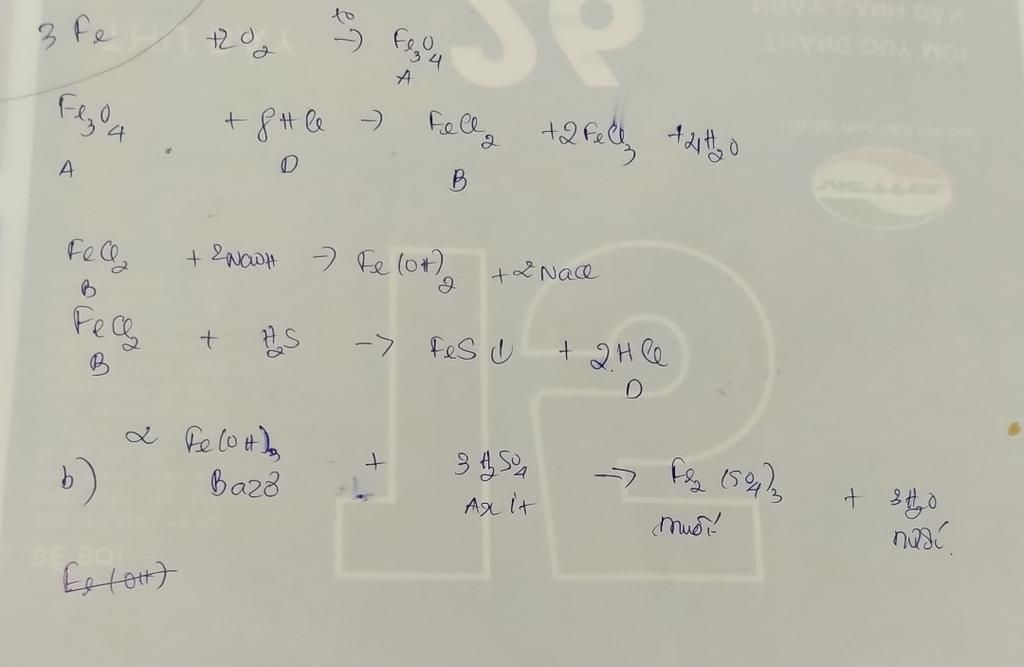 3 Fe +2O₂ t⁰→ Fe₃O₄
A
Fe₃O₄ + 8HCl → FeCl₂ +2FeCl₃ +4H₂O
A D B
FeCl₂ + 2NaOH → Fe(OH)₂ +2NaCl
B
FeCl₂ + H₂S → FeS ↓ + 2HCl
B D
b) 2 Fe(OH)₃ + 3H₂SO₄ → Fe₂(SO₄)₃ + 3H₂O
Bazơ Axit muối nước.
Fe(OH)